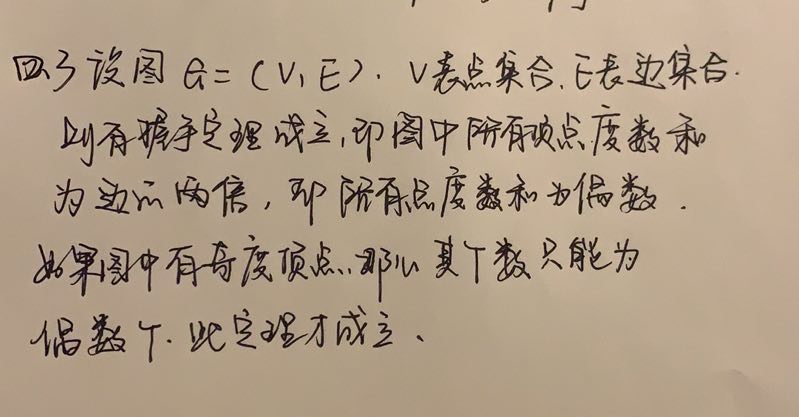 四、3 设图 G=(V,E). V表点集合,E表边集合.
则有握手定理成立,即图中所有顶点度数和
为边的两倍,即所有点度数和为偶数.
如果图中有奇度顶点,那么其个数只能为
偶数个.此定理才成立.